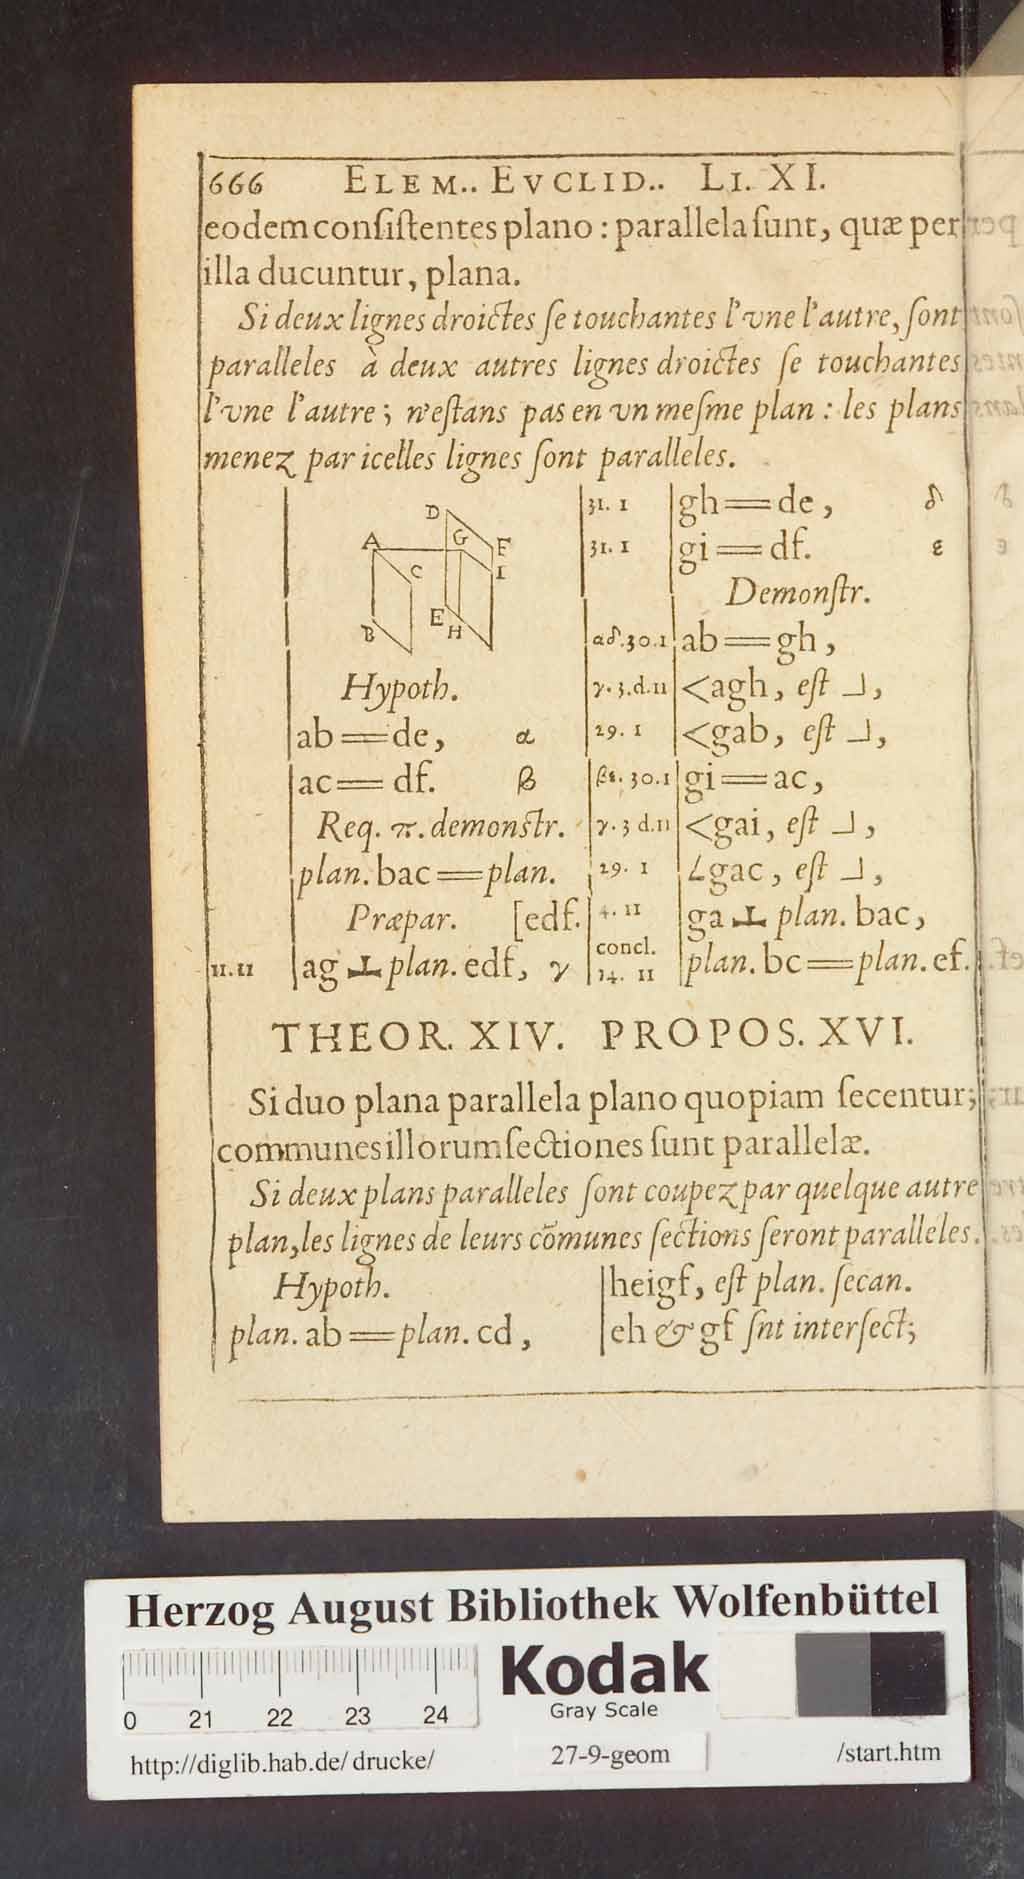 666 ELEM.. EVCLID.. LI. XI.
eodem consistentes plano : parallela sunt, quæ per
illa ducuntur, plana.
Si deux lignes droictes se touchantes l'vne l'autre, sont
paralleles à deux autres lignes droictes se touchantes
l'vne l'autre ; n'estans pas en vn mesme plan : les plans
menez par icelles lignes sont paralleles.
D
A G F
C I
E
B H
Hypoth.
ab == de, α
ac == df. β
Req. π. demonstr.
plan. bac == plan.
Præpar. [edf.
11.11 ag ⊥ plan. edf, γ
31. 1 gh == de, δ
31. 1 gi == df. ε
Demonstr.
αδ. 30.1 ab == gh,
γ. 3.d.11 <agh, est ┘,
29. 1 <gab, est ┘,
βε. 30.1 gi == ac,
γ. 3 d.11 <gai, est ┘,
29. 1 ∠gac, est ┘,
4. 11 ga ⊥ plan. bac,
concl.
14. 11 plan. bc == plan. ef.
THEOR. XIV. PROPOS. XVI.
Si duo plana parallela plano quopiam secentur;
communes illorum sectiones sunt parallelæ.
Si deux plans paralleles sont coupez par quelque autre
plan, les lignes de leurs cõmunes sections seront paralleles.
Hypoth.
plan. ab == plan. cd,
heigf, est plan. secan.
eh & gf snt intersect;
Herzog August Bibliothek Wolfenbüttel
Kodak
Gray Scale
0 21 22 23 24
http://diglib.hab.de/drucke/ 27-9-geom /start.htm